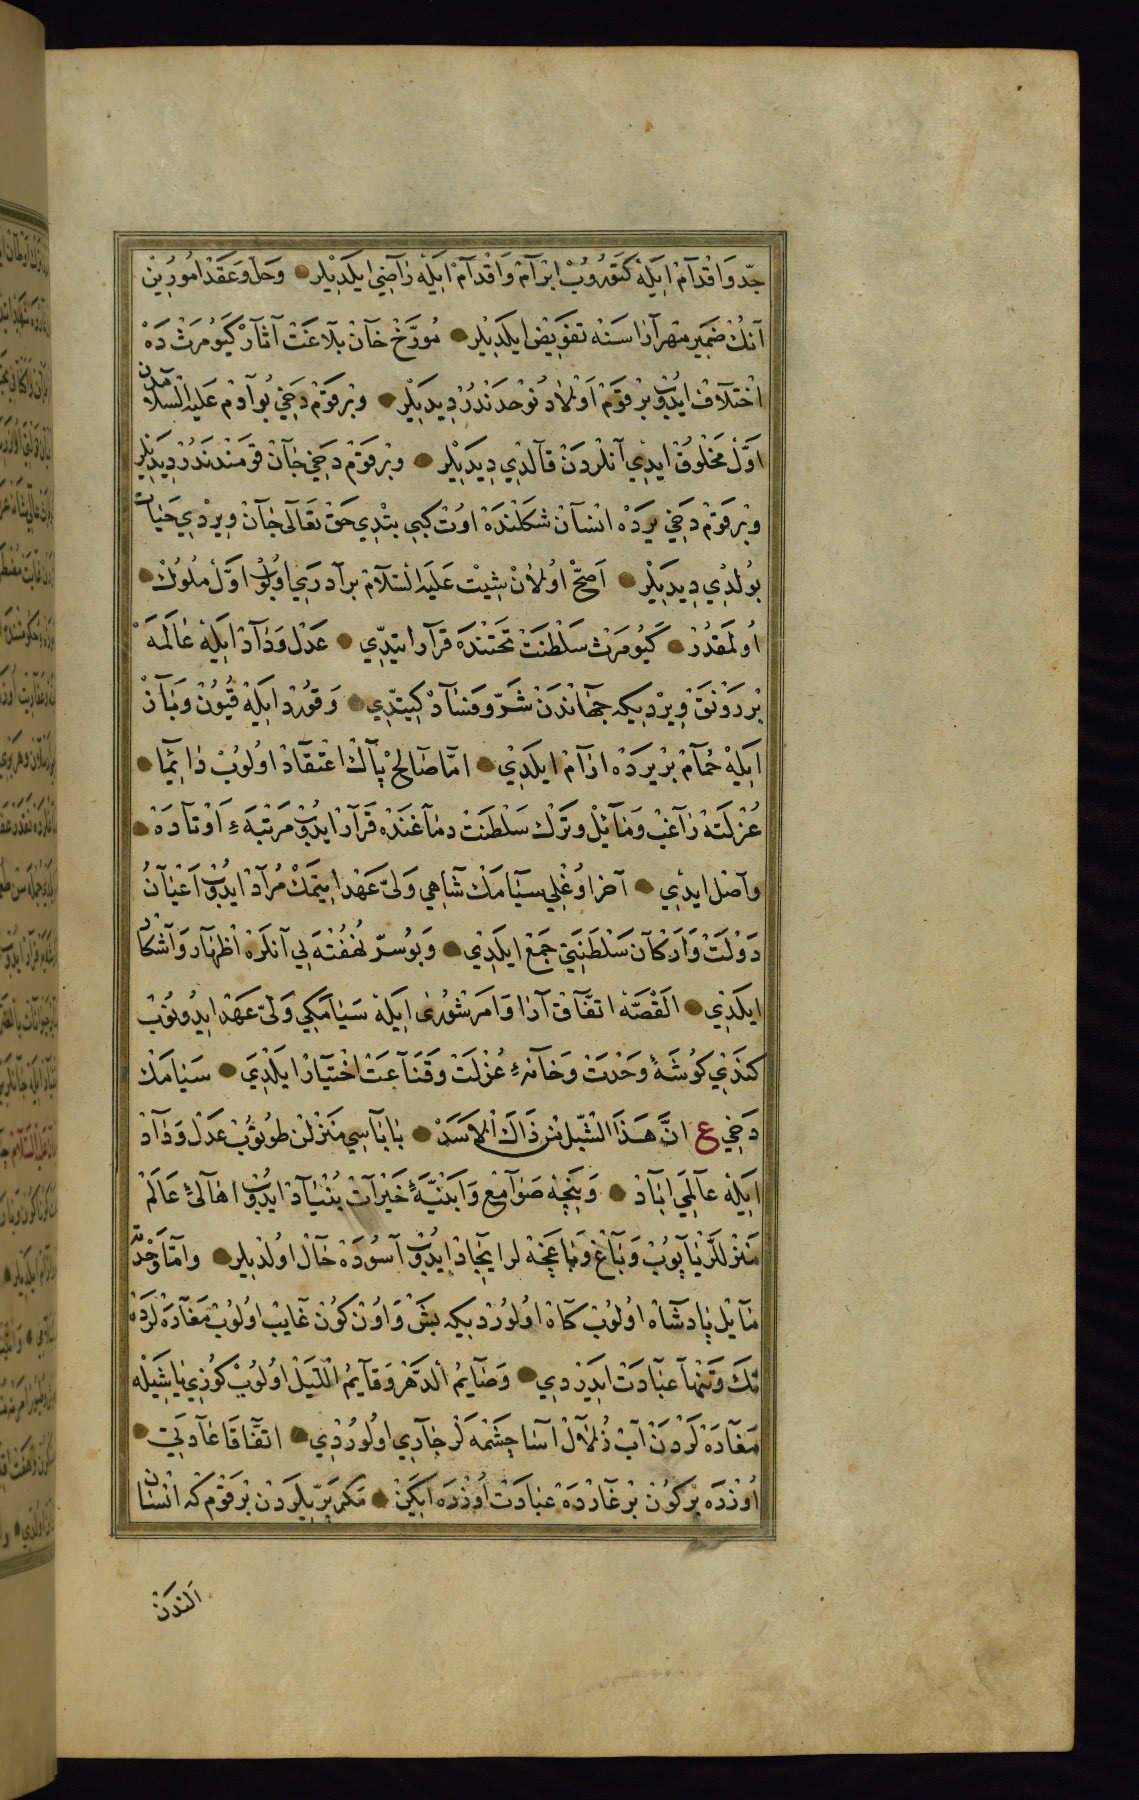 جدّ وَاقْدَامْ اِيلَهْ كَتُورُوبْ اِبْرَامْ وَاقْدَامْ اِيلَهْ رَاضِي اِيلَدِيلَر وَحَلّ وَعَقْدِ اُمُورِينْ
آنُكْ ضَمِيرِ مِهْرآرَاسَنَه تَفْوِيضْ اِيلَدِيلَر مُورّخْ خَانْ بَلَاغَتْ آثَارْ كَيُومَرثْ دَهْ
اخْتِلَافْ ايدُوبْ بِرْ قَوْمْ اَوْلَادِ نُوْحدَندُرْ دِيدِيلَر وبِرْ قَوْمْ دَخِي بُو آدَمْ عَلَيْه السَّلَامدَن
اوّلْ مَخْلُوقْ ايدِي آنلَردَنْ قَالدِي دِيدِيلَر وبِرْ قَوْمْ دَخِي جَانْ قَومندَندُرْ دِيدِيلَر
وبِرْ قَوْمْ دَخِي يَردَهْ انْسَانْ شَكلندَهْ اوُتْ كِبِي بِتْدِي حَقْ تَعَالَى جَانْ وِيرْدِي حَيَات
بُولدِي دِيدِيلَر اَصَحّ اوُلَانْ شِيتْ عَلَيْه السَّلَامْ بِرَادَرِي اوُلُوبْ اوّلْ مُلُوكْ
اُولمَقدُرْ كَيُومَرثْ سَلْطَنَتْ تَحْتندَه قَرَار ايتدِي عَدْل وَدَادْ اِيلَهْ عَالَمَهْ
بِرْ رَوْنَقْ وِيرْدِيكِه جِهَاندَنْ شَرّ وفَسَادْ كِيتدِي وَقُورْد اِيلَهْ قُيُونْ وبَازْ
اِيلَهْ حَمَامْ بِرْ يَردَهْ ارَامْ اِيلَدِي امّا صَالِحْ پَاكْ اعْتِقَادْ اوُلُوبْ دَائِمَا
عُزْلَتَهْ رَاغِبْ وَمَائِلْ وتَرْكِ سَلْطَنَتْ دِمَاغندَهْ قَرَارْ ايدُوبْ مَرْتَبَهٔ اَوْتَادَهْ
وَاصِل ايدِي آخر اوُغْلِي سِيَامَكْ شَاهِي وَلِيّ عَهْد ايتمَكْ مُرَادْ ايدُوبْ اَعْيَانِ
دَوْلَتْ وَاَرْكَانِ سَلْطَنَتِي جَمْعْ اِيلَدِي وَبُو سِرّ نُهُفْتَه يِي آنلَرَهْ اظْهَار وَآشكَار
اِيلَدِي القِصَّهْ اتّفَاقِ آرَا وَامرِ شُورَى اِيلَهْ سِيَامَكِي وَلِيّ عَهْد ايدُونُوبْ
كَنْدِي كَوُشَهٔ وَحْدَتْ وَخَانهٔ عُزْلَتْ وقَنَاعَتْ اخْتِيَارْ اِيلَدِي سِيَامَكْ
دَخِي ع انَّ هَذَا الشّبْلَ مِنْ ذَاكَ الْاَسَدْ بَابَاسِي مَنزِلِن طُوتُوبْ عَدْل وَدَادْ
اِيلَهْ عَالَمِي ابَادْ وَنِيجَه صَوَامِعْ وَابْنِيَهٔ خَيْرَاتْ بُنْيَادْ ايدُوبْ اهَالِئ عَالَمْ
مَنزِللَر يَاپُوبْ وَبَاغْ وَبَاغچَهْ لر ايجَادْ ايدُوبْ آسُودَهْ حَالْ اوُلدِيلَر وامَّا وَحْدَتَه
مَائِلْ پَادشَاهْ اوُلُوبْ كَاهْ اوُلُورْدِيكِه بَشْ وَاوُنْ كُونْ غَايِبْ اوُلُوبْ مَغَارَهْ لَردَهْ
تَكْ وتَنْهَا عِبَادَتْ ايدَرْدِي وَصَايِمُ الدَّهْر وقَايِمُ اللَّيْلْ اوُلُوبْ كُوزِي يَاشِيلَه
مَغَارَهْ لَرْدَنْ آبِ زُلَالْ آسَا چِشمَه لَر جَارِي اوُلُورْدِي اتّفَاقَا عَادَتِي
اُوزْرَه بِرْ كُونْ بِرْ غَارْدَهْ عِبَادَتْ اُوزْرَه ايكَنْ مَكَر پَرِيلَردَنْ بِرْ قَوْمْ كه انْسَان
الندَن